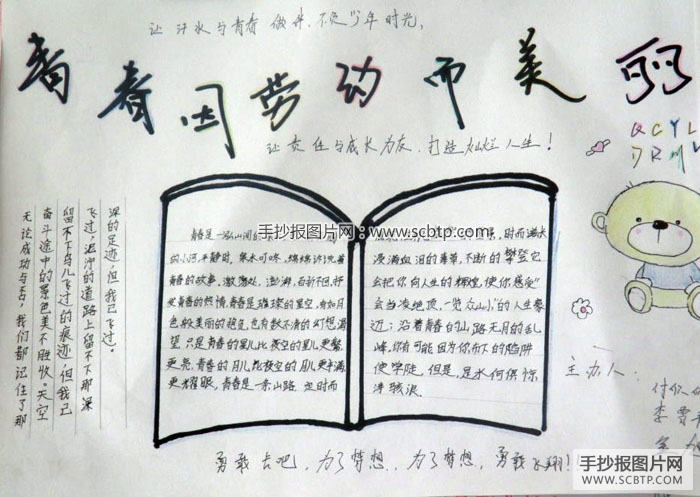 让汗水与青春做舟，不负少年时光，
青春因劳动而美丽
让责任与成长为友，打造灿烂人生！
QCYL
手抄报图片网：www.scbtp.com
青春是一泓山间的
的小河，平静时，泉水叮咚，绵绵诉说着
青春的故事，激荡处，澎湃，百折不回，抒
发青春的热情，青春是璀璨的星空，有如月
色般美丽的现实，也有数不清的幻想渴
望，只是青春的星儿比夜空的星儿更繁
更亮，青春的月儿比夜空的月儿更丰满
更耀眼，青春是一条山路，它时而
时而满水
浸满血泪的青草，不断的攀登它
会把你向人生的辉煌，使你感受
会当凌绝顶，一览众山小的人生豪
迈；沿着青春的山路无月的乱
峰，你有可能因为脚下的陷阱
使学陡，但是，是水何惧惊
涛骇浪
深的足迹，但我已飞过，
飞过，泥泞的道路上留不下那深
留不下鸟儿飞过的痕迹，但我已
奋斗途中的景色美不胜收。天空
无论成功与否，我们都记住了那
主办人：
李
勇敢去吧，为了梦想，为了梦想，勇敢飞翔！
手抄报图片网
WWW.SCBTP.COM